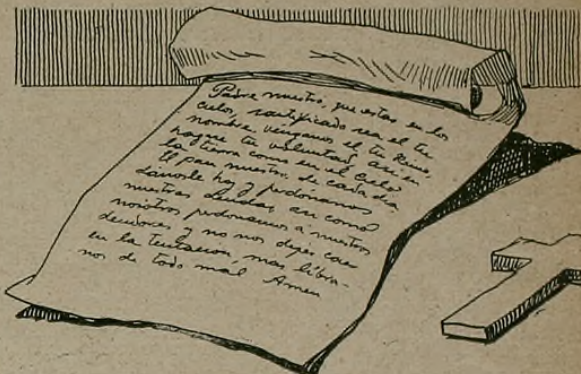 Padre nuestro, que estas en los
cielos, santificado sea el tu
nombre, venganos el tu Reino,
hagase tu voluntad, asi en
la tierra como en el cielo
El pan nuestro de cada dia
danosle hoy y perdónanos
nuestras deudas, asi como
nosotros perdonamos a nuestros
deudores y no nos dejes caer
en la tentación, mas líbra-
nos de todo mal Amen